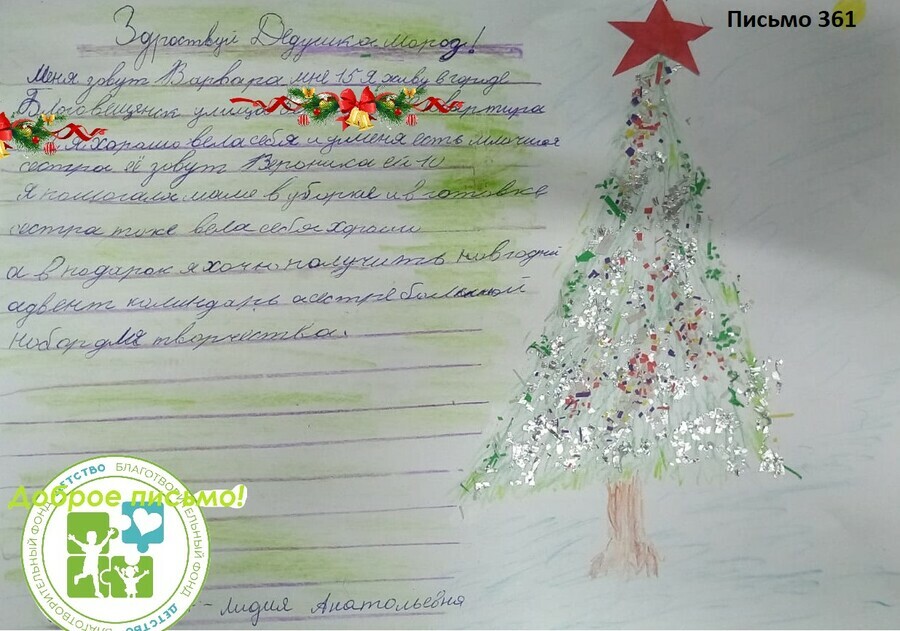 Письмо 361
Здроствуй Дедушка мороз!
Меня зовут Варвара мне 15 я живу в городе
Благовещенск улица вартира
я хорошо вела себя и уменя есть млачшая
сестра её зовут Вероника ей 10
я помогала маме в уборке и в готовке
сестра тоже вела себя хорошо
а в подарок я хочу получить новгодний
адвент календарь а сестре большой
набор для творчества.
Доброе письмо!
БЛАГОТВОРИТЕЛЬНЫЙ ФОНД ДЕТСТВО
Лидия Анатольевна